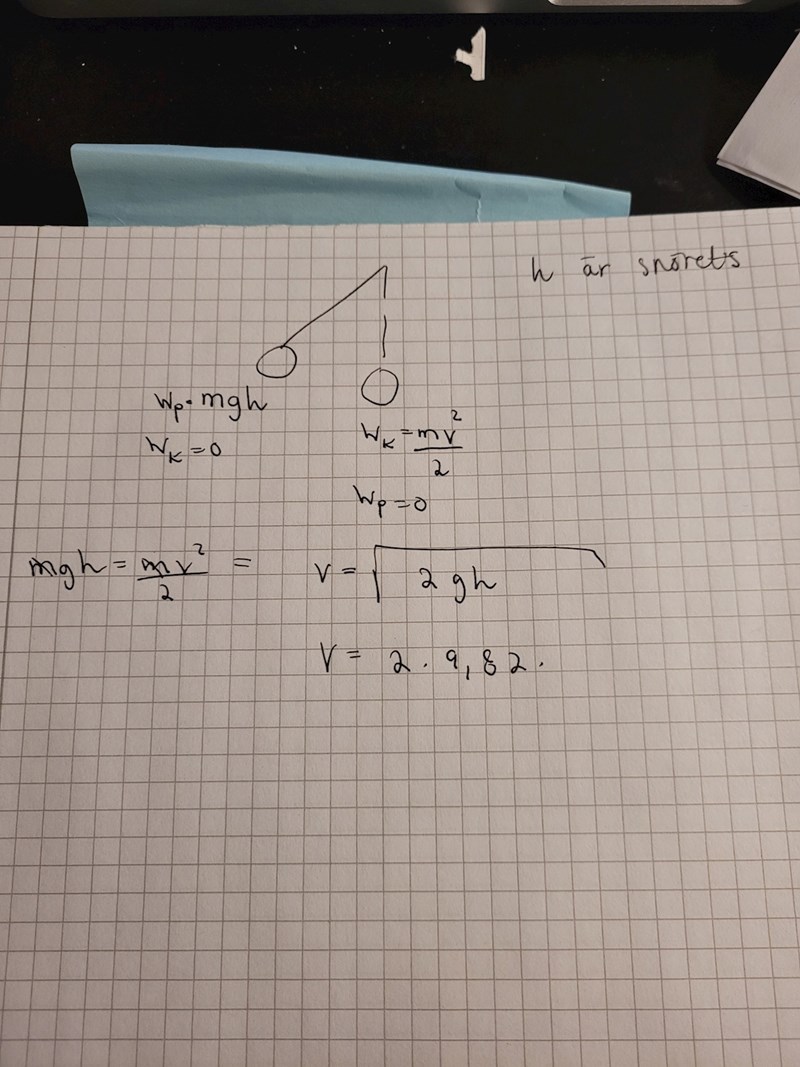 h är snörets
Wp = mgh
WK = 0
WK = mv²/2
Wp = 0
mgh = mv²/2 = v = √2gh
V = 2 · 9,82 ·